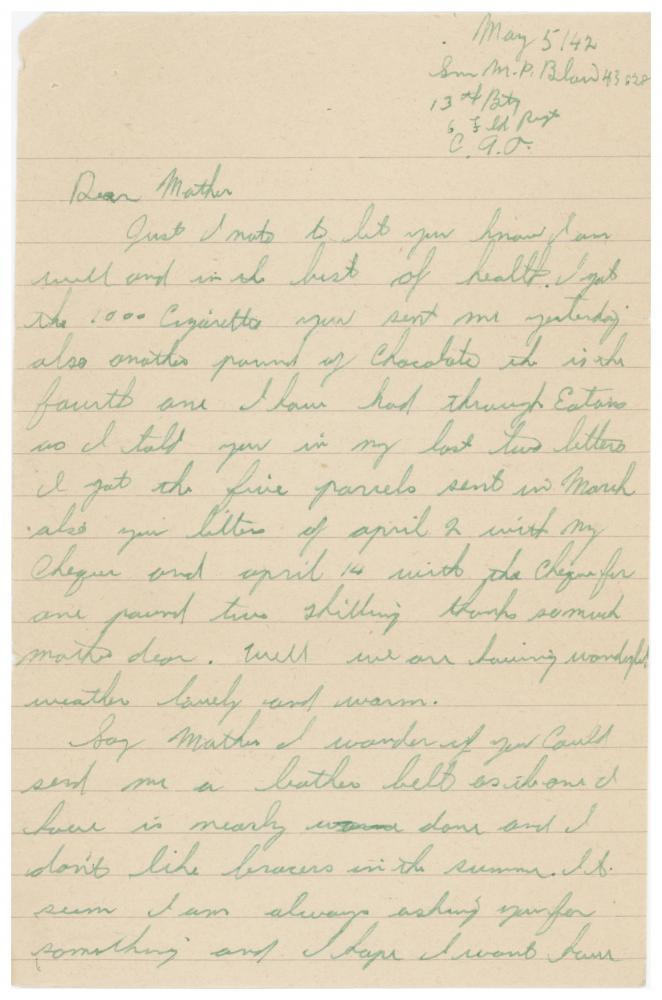 May 5/42
Gnr M.P. Blair 43828
13th Bty
6 Fld Regt
C.A.O.
Dear Mother
Just a note to let you know I am
well and in the best of health. I got
the 1000 Cigarettes you sent me yesterday
also another pound of Chocolate the is the
fourth one I have had through Eatons
as I told you in my last two letters
I got the five parcels sent in March
also your letters of april 2 with my
Cheque and april 14 with the Cheque for
one pound two shilling thanks so much
mother dear. Well we are having wonderful
weather lovely and warm.
Say Mother I wonder if you Could
send me a leather belt as the one I
have is nearly done and I
don't like bracers in the summer. It
seem I am always asking you for
something and I hope I wont have